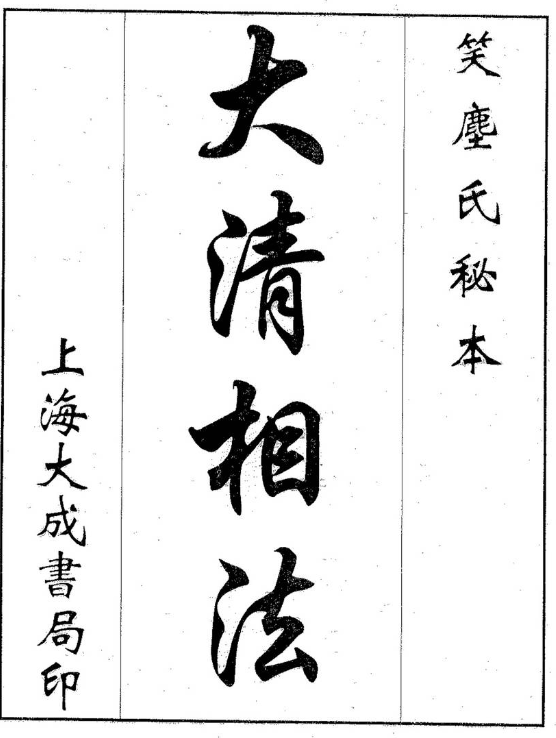 笑塵氏秘本
大清相法
上海大成書局印